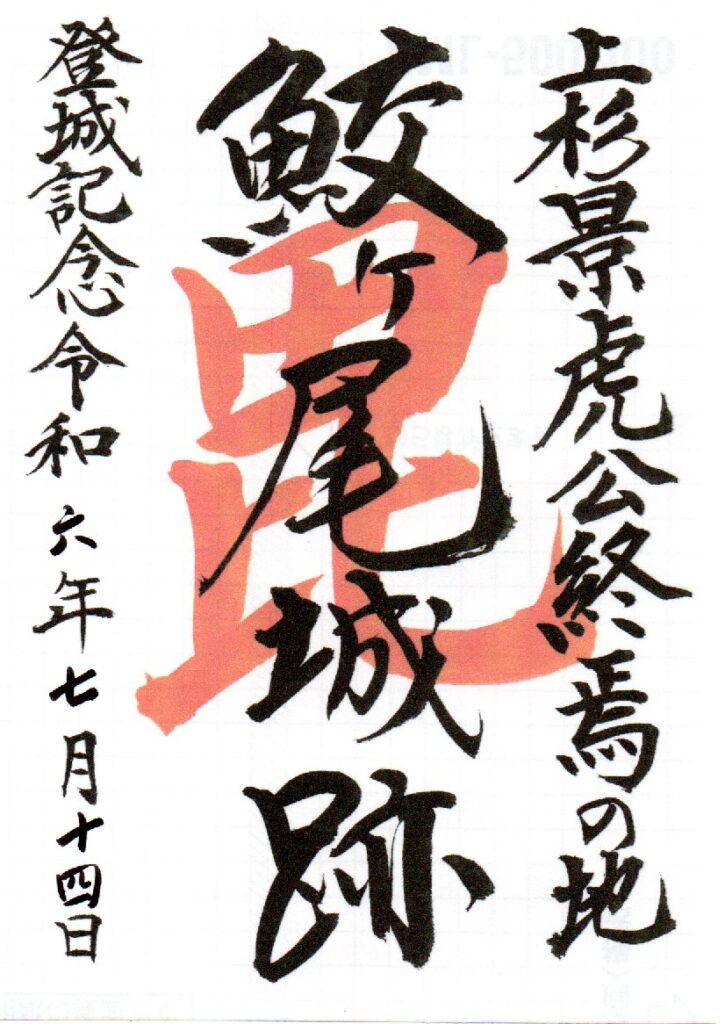 上杉景虎公終焉の地
鮫ヶ尾城跡
毘
登城記念令和六年七月十四日